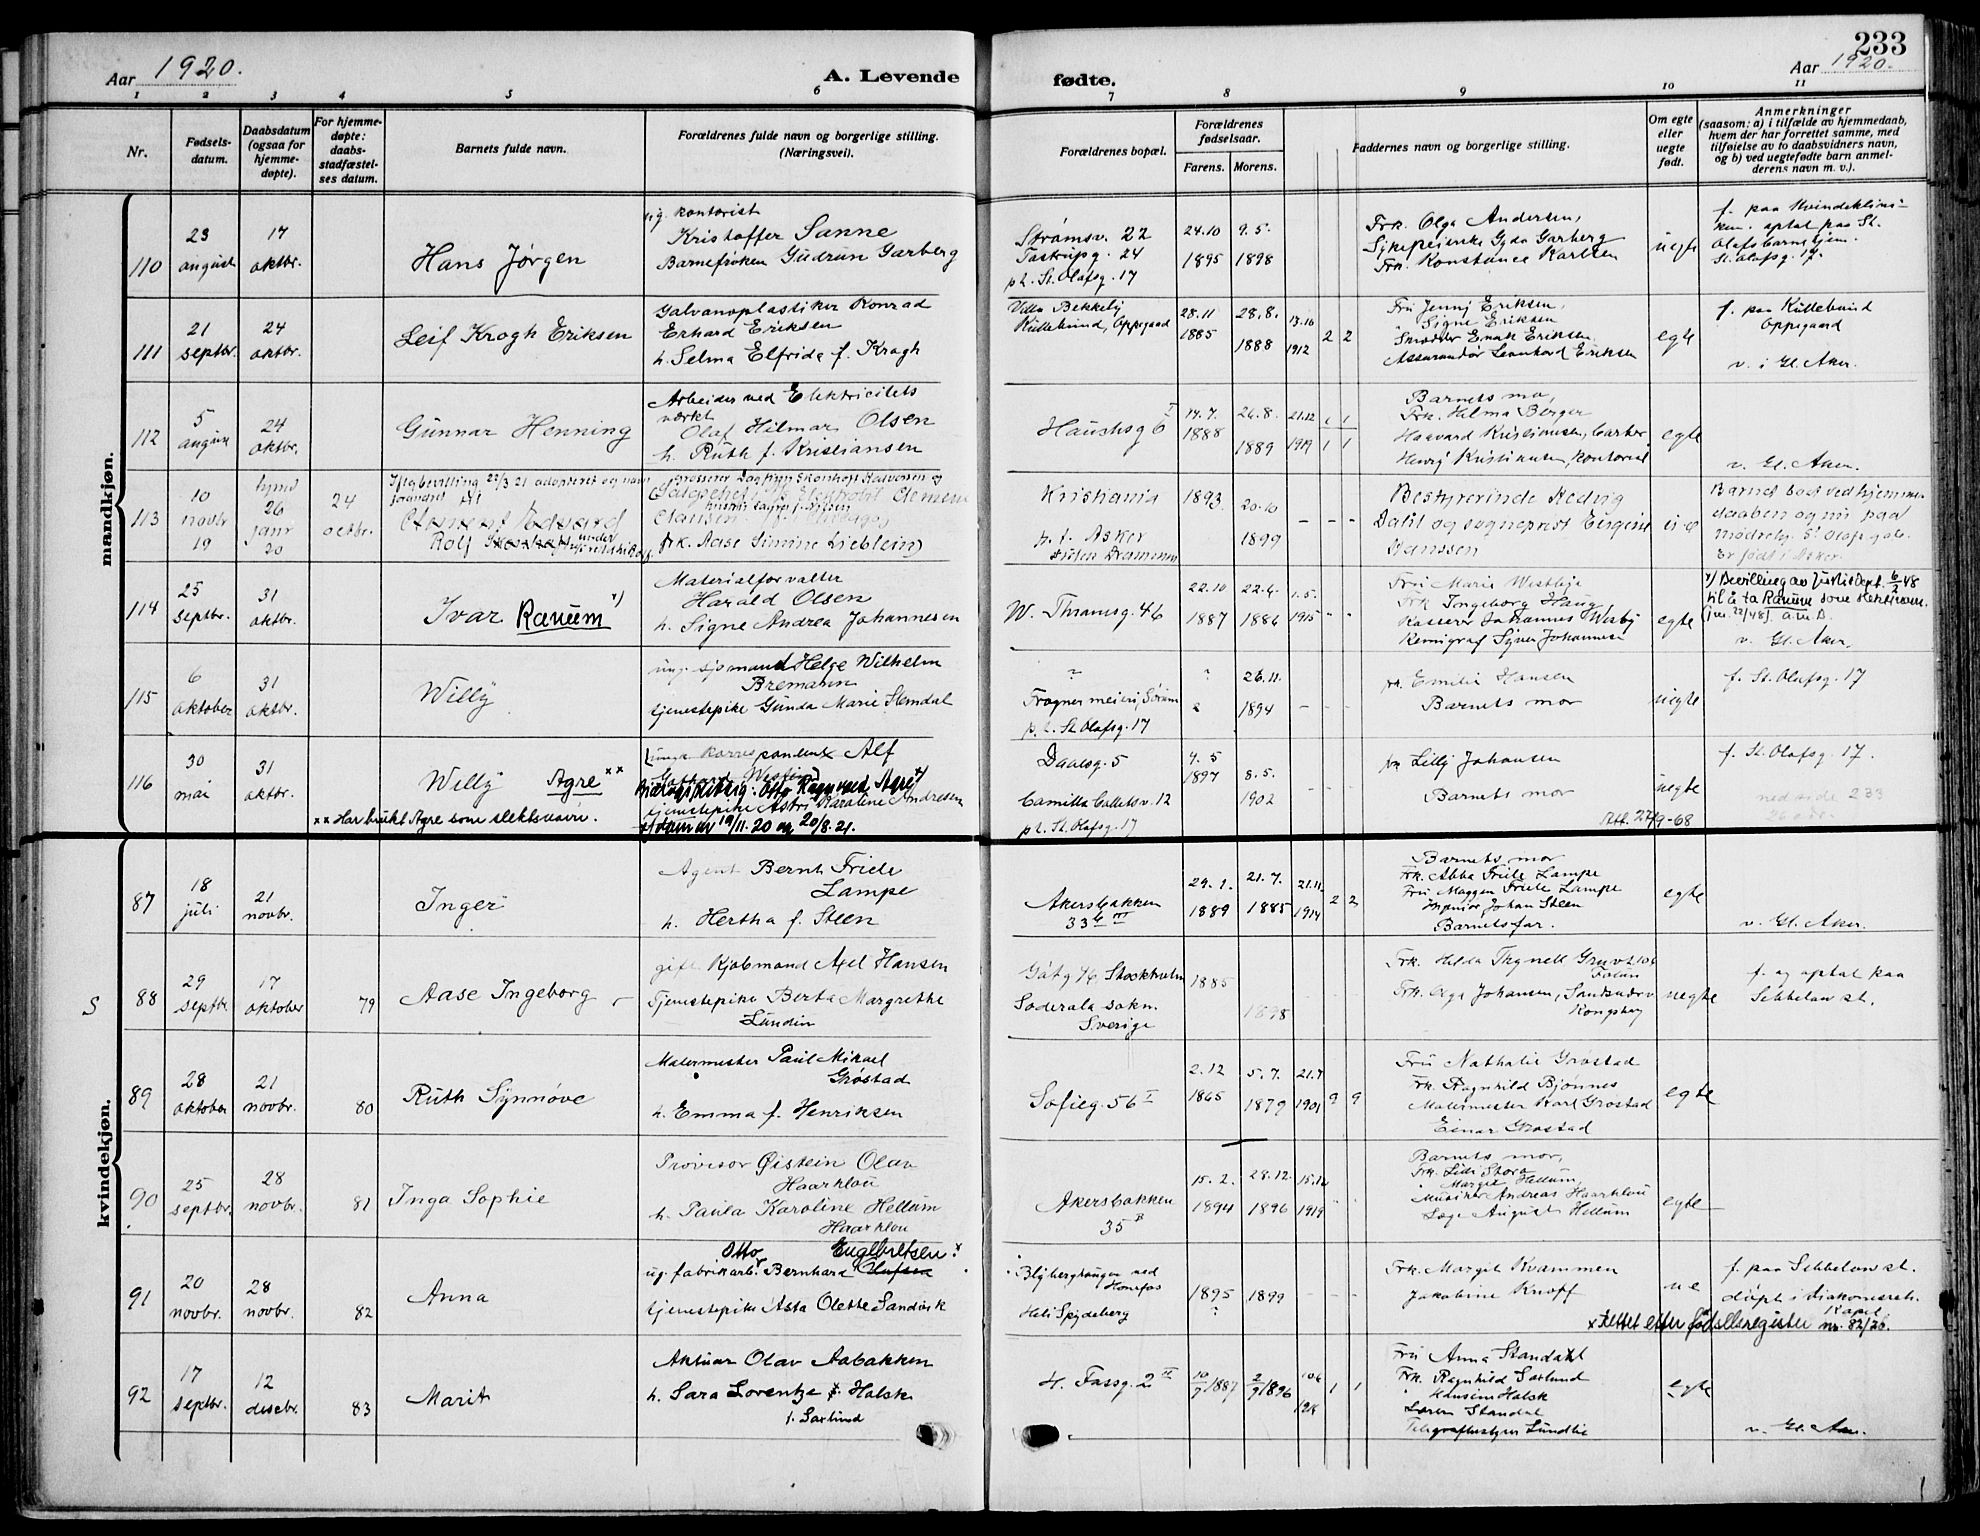 233
Aar 1920.
A. Levende
fødte.
Aar 1920.
1 2 3 4 5 6 7 8 9 10 11
Nr.
Fødsels-
datum.
Daabsdatum
(ogsaa for
hjemme-
døpte).
For hjemme-
døpte:
daabs-
stadfæstel-
ses datum.
Barnets fulde navn.
Forældrenes fulde navn og borgerlige stilling.
(Næringsvei).
Forældrenes bopæl.
Forældrenes
fødselsaar.
Farens. Morens.
Faddernes navn og borgerlige stilling.
Om egte
eller
uegte
født.
Anmerkninger
(saasom: a) i tilfælde av hjemmedaab,
hvem der har forrettet samme, med
tilføielse av to daabsvidners navn,
og b) ved uegtefødte barn anmel-
derens navn m. v.).
mandkjøn.
110
23
august
17
oktbr.
Hans Jørgen
ug. kontorist
Kristoffer Sanne
Barnefrøken Gudrun Garberg
Strømsv. 22
Tostrupg. 24
p.t. St. Olafsg. 17
24.10
1895
9.5.
1898
Frk. Olga Andersen,
Sykepleierske Gyda Garberg
Frk. Konstance Karlsen
uegte
f. paa Kvindeklini-
ken. optat paa St.
Olafs barnehjem.
St. Olafsg. 17.
111
21
septbr.
24
oktbr.
Leif Krogh Eriksen
Galvanoplastiker Konrad
Erhard Eriksen
h. Selma Elfrida f. Krogh
Villa Bekkely
Kullebund, Oppegaard
28.11
1885
28.8.
1888
13.10
1912
2 2
Fru Jenny Eriksen,
" Signe Eriksen
Snedker Enok Eriksen
Assurandør Leonhard Eriksen
egte
f. paa Kullebund
Oppegaard
v. i Gl. Aker.
112
5
august
24
oktbr.
Gunnar Henning
Arbeider ved Elektricitets
verket
Olaf Hilmar Olsen
h. Ruth f. Kristiansen
Hauchsg 6 I
14.7.
1888
26.8.
1889
21.12
1919
1 1
1 1
Barnets mo,
Frk. Hilma Berger
Haavard Kristiansen,
Henry Kristiansen, kontorist
egte
v. Gl. Aker.
113
10
novbr
19
26
janr
20
24
octbr.
Rolf
frk. Aase Simine Lieblein
Kristiania
p.t. Asker
1893
20.10
1899
- - -
Bestyrerinde Hedvig
Dahl og sogneprest Eugene
Hanssen
114
25
septbr.
31
oktbr.
Ivar Ranum x)
Materialforvalter
Harald Olsen
h. Signe Andrea Johannesen
W. Thranesg. 46
22.10
1887
22.4.
1886
1.5.
1915
Fru Marie Westbye
Frk Ingeborg Haug
Kasserer Johannes Westby
Kemigraf Syver Johannesen
egte
x) Bevilling av Justisdept. 6/2 48
til å ta Ranum som slektsnavn.
v. Gl. Aker.
115
6
oktober
31
oktbr.
Willy
ung. sjømand Helge Wilhelm
Bremann
tjenestepike Gunda Marie Stendal
?
Frogner meieri, Sørum
p.t. St. Olafsg. 17
?
26.11.
1894
- - -
frk. Emilie Hansen
Barnets mor
uegte
f. St. Olafsg. 17
116
30
mai
31
oktbr.
Willy Agre xx
xx Har brukt Agre som slektsnavn.
(ungk. korrespondent Alf
Bidragspliktig: Otto Ragnvald Agre x)
tjenestepike Astri Karoline Andresen
x) dom av 19/11.20 og 20/8.21.
Daasg. 5
Camilla Colletsv. 12
p.t. St. Olafsg. 17
4.5
1897
8.5.
1902
frk Lilly Johansen
Barnets mor
uegte
f. St. Olafsg. 17.
Att. 27/9-68
ned side 233
kvindekjøn.
87
18
juli
21
novbr.
Inger
Agent Bernt Friele
Lampe
h. Hertha f. Steen
Akersbakken
33 b III
29.1.
1889
21.7.
1885
21.11
1914
2 2
Barnets mor
Frk. Abba Friele Lampe
Fru Maggen Friele Lampe
Ingeniør Johan Steen
Barnets far.
egte
v. Gl. Aker.
S
88
29
septbr
17
oktober
79
Aase Ingeborg
gift Kjøbmand Axel Hansen
Tjenestepike Berta Margrethe
Lundin
Götg 76 Stockholm
Soderala sokn.
Sverige
1885
1898
- - -
Frk. Hilda Thynell
Falun
Frk. Olga Johansen,
Kongsberg
uegte
f. og optat paa
Sebbelow st.
89
28
oktober
21
novbr.
80
Ruth Synnøve
Malermester Paul Mikael
Grøstad
h. Emma f. Henriksen
Sofieg. 56 I
2.12
1865
5.7.
1879
21.7
1901
9 9
Fru Nathalie Grøstad
Frk. Ragnhild Bjønnes
Malermester Karl Grøstad
Einar Grøstad
egte
90
25
septbr.
28
novbr.
81
Inga Sophie
Provisor Øistein Olav
Haarklou
h. Paula Karoline Hellum
Haarklou
Akersbakken
35 B
15.2.
1894
28.12.
1896
15.10
1919
Barnets mor,
Frk. Lilli Stora
" Margit Hellum,
Musiker Andreas Haarklou
Læge August Hellum
egte
91
20
novbr.
28
novbr.
82
Anna
Otto Engebretsen x
ug. fabrikarb. Bernhard Olafsen
tjenestepike Asta Olette Sandvik
Blyberghaugen ved
Hønefos
Heli Spydeberg
1895
?
1899
- - -
Frk. Margit Kvammen
Jakobine Knopf
ue
f. paa Sebbelow st.
døpt i diakonisseh.
kapel.
x Rettet etter fødselsregister nr. 82/20.
92
17
septbr.
12
decebr.
83
Marit
Aktuar Olav Aabakken
h. Sara Lorentze f. Halsk
f. Saxlund
H. Fossg. 2 II
10/7 1887
2/9 1896
10.6
1918
1 1
Fru Anna Standahl
Frk. Ragnhild Saxlund
" Hansine Halsk
Søren Standal
egte
v. Gl. Aker.